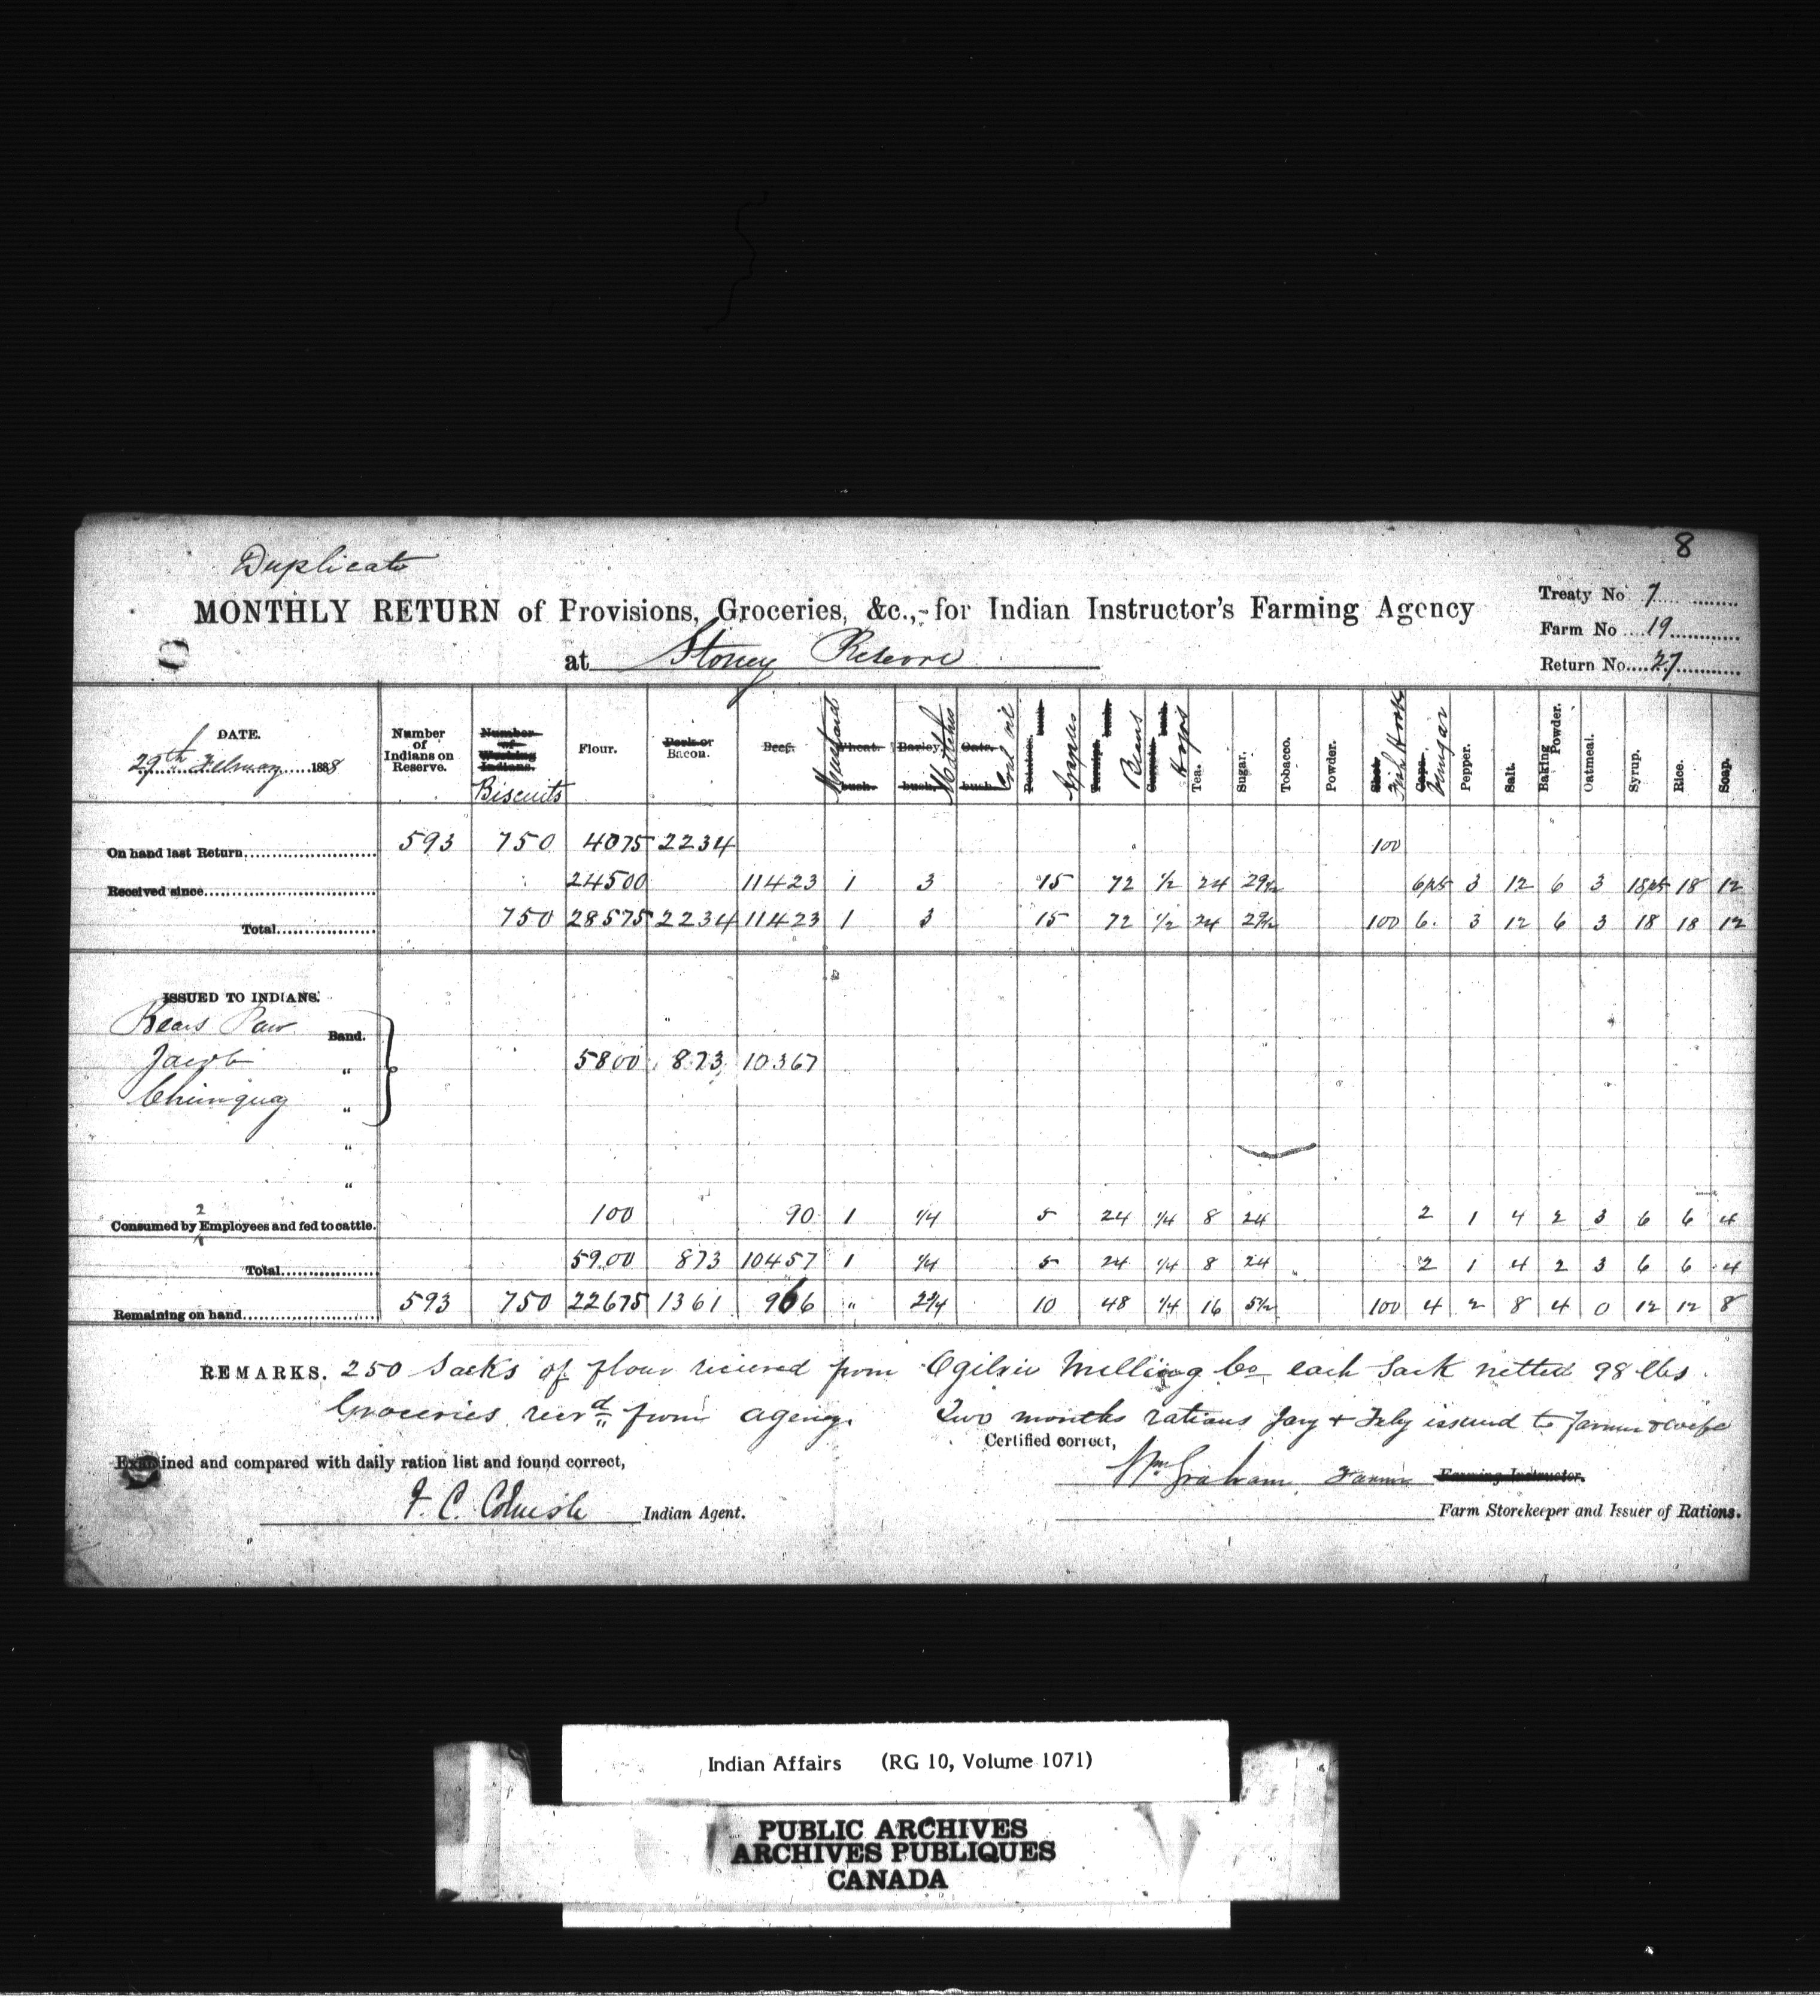 8
Duplicate
MONTHLY RETURN of Provisions, Groceries, &c., for Indian Instructor's Farming Agency
at Stoney Reserve
Treaty No 7
Farm No 19
Return No 27
DATE. 29th Febuary 1888 Number of Indians on Reserve. Number of Working Indians. Biscuits Flour. Pork or Bacon. Beef. Wheat. bush. Mustard Barley. bush. Matches Oats. bush. Coal oil Potatoes. bush. Apples Turnips. bush. Beans Carrots. bush. Hops Tea. Sugar. Tobacco. Powder. Shot. Fish Hooks Caps. Vinegar Pepper. Salt. Baking Powder. Oatmeal. Syrup. Rice. Soap.
On hand last Return 593 750 4075 2234 100
Received since 24500 11423 1 3 15 72 1/2 24 29 1/2 6 pts 3 12 6 3 18 pts 18 12
Total 750 28575 2234 11423 1 3 15 72 1/2 24 29 1/2 100 6 3 12 6 3 18 18 12
ISSUED TO INDIANS.
Bears Paw Band.
Jacob " 5800 873 10367
Chiniquay "
"
"
Consumed by 2 Employees and fed to cattle. 100 90 1 1/4 5 24 1/4 8 24 2 1 4 2 3 6 6 4
Total 5900 873 10457 1 1/4 5 24 1/4 8 24 2 1 4 2 3 6 6 4
Remaining on hand 593 750 22675 1361 966 " 2 3/4 10 48 1/4 16 5 1/2 100 4 2 8 4 0 12 12 8
REMARKS. 250 Sacks of flour recieved from Ogilvie Milling Co each Sack netted 98 lbs.
Groceries recrd from agency. Two months rations Jany & Feby issued to farmer & wife
Certified correct,
Examined and compared with daily ration list and found correct,
Wm Graham Farmer Farming Instructor.
Indian Agent.
Farm Storekeeper and Issuer of Rations.
Indian Affairs (RG 10, Volume 1071)
PUBLIC ARCHIVES
ARCHIVES PUBLIQUES
CANADA